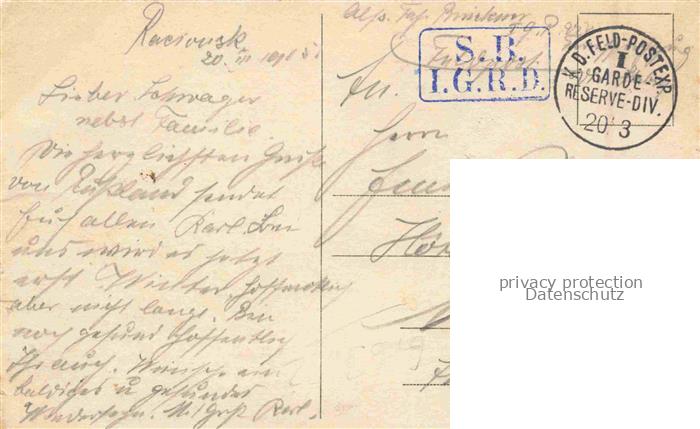 Racionsk
20. III 1915
Lieber Schwager
nebst Familie.
Die herzlichsten Grüße
von Rußland sendet
Euch allen Karl. Bei
uns wird es jetzt
erst Winter hoffentlich
aber nicht lange. Bin
noch gesund hoffentlich
Ihr auch. Wünsche ein
baldiges u. gesundes
Wiedersehn. M. Grß Karl.
Feldpost
S. B.
I. G. R. D.
K. D. FELD-POSTEXP.
I
GARDE-
RESERVE-DIV.
20 3
An
Herrn
privacy protection
Datenschutz